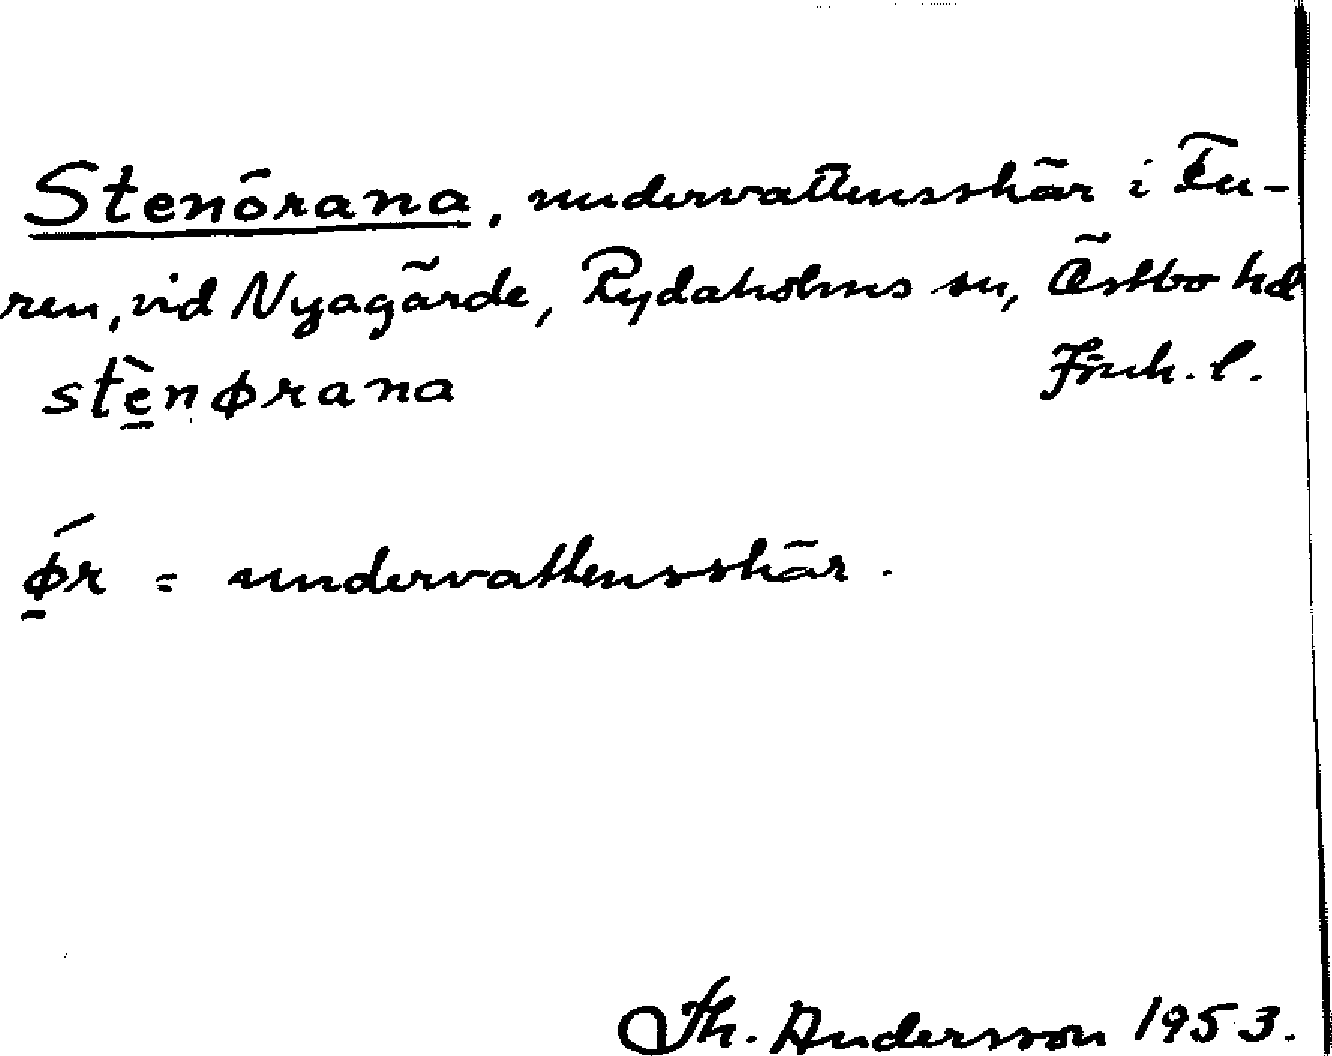 Stenörana, undervattensskär i Fu-
ren, vid Nyagärde, Rydaholms sn, Östbo hd
stè̱nørana Jönk. l.
ǿ̱r = undervattensskär.
Th. Andersson 1953.